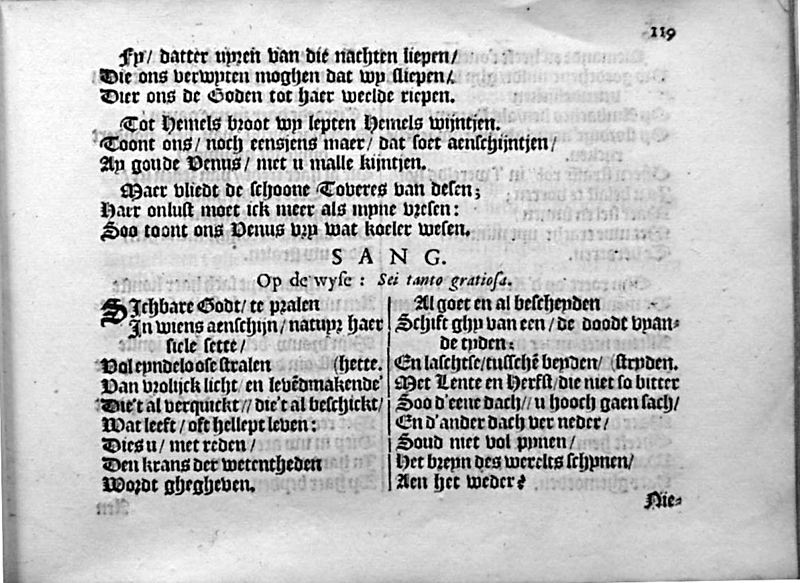 119
Fy/ datter uyren van die nachten liepen/
Die ons verwyten moghen dat wy sliepen/
Dier ons de Goden tot haer weelde riepen.
Tot Hemels broot wy lepten Hemels wijntjen.
Toont ons/ noch eensjens maer/ dat soet aenschijntjen/
Ay goude Venus/ met u malle kijntjen.
Maer vliedt de schoone Toveres van desen;
Haer onlust moet ick meer als myne vresen:
Soo toont ons Venus vry wat koeler wesen.
SANG.
Op de wyse: Sei tanto gratiosa.
SIchbare Godt/ te pralen
In wiens aenschijn/ natuyr haer
siele sette/
Vol eyndeloose stralen (hette.
Van vrolijck licht/ en levēdmakende
Die't al verquickt// die't al beschickt/
Wat leeft/ oft hellept leven:
Dies u/ met reden/
Den krans der wetentheden
Wordt ghegheven.
Al goet en al bescheyden
Schift ghy van een/ de doodt vyan-
de tyden:
En laschtse/ tusschē beyden/ (stryden.
Met Lente en Herfst/ die niet so bitter
Soo d'eene dach// u hooch gaen sach/
En d'ander dach ver neder/
Soud niet vol pynen/
Het breyn des werelts schynen/
Aen het weder?
Nie-